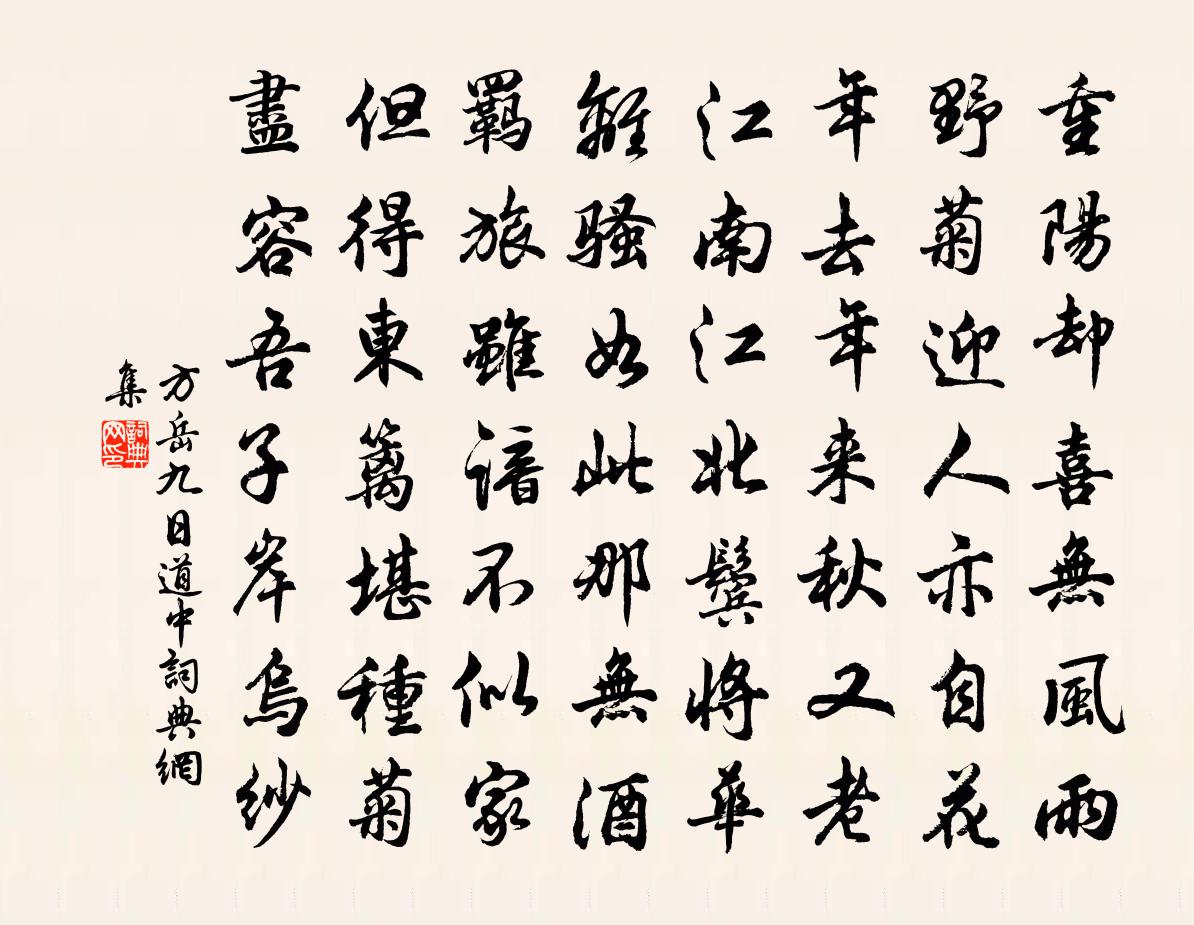 重陽却喜無風雨
野菊迎人亦自花
年去年来秋又老
江南江北鬓將華
離騷如此那無酒
羈旅雖諳不似家
但得東籬堪種菊
盡容吾子岸烏紗
方岳九日道中詞典網
集
詞典
网印